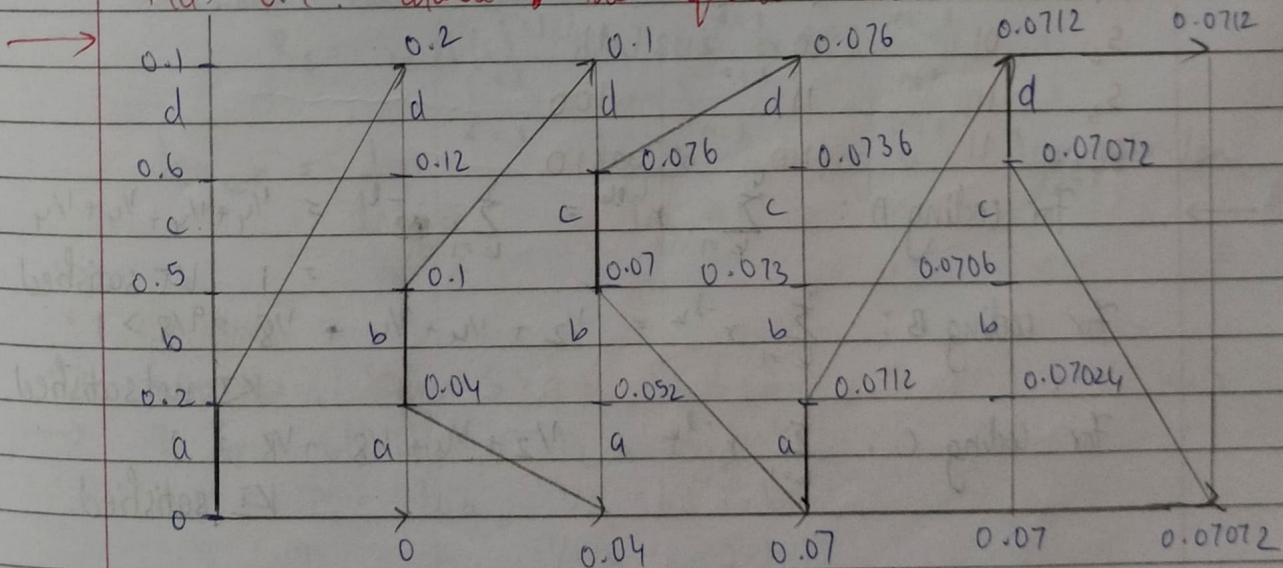 0.2 0.1 0.076 0.0712 0.0712
0.1
d d d d d
0.6 0.12 0.076 0.0736 0.07072
c c c c
0.5 0.1 0.07 0.073 0.0706
b b b b b
0.2 0.04 0.052 0.0712 0.07024
a a a a
0
0 0.04 0.07 0.07 0.07072